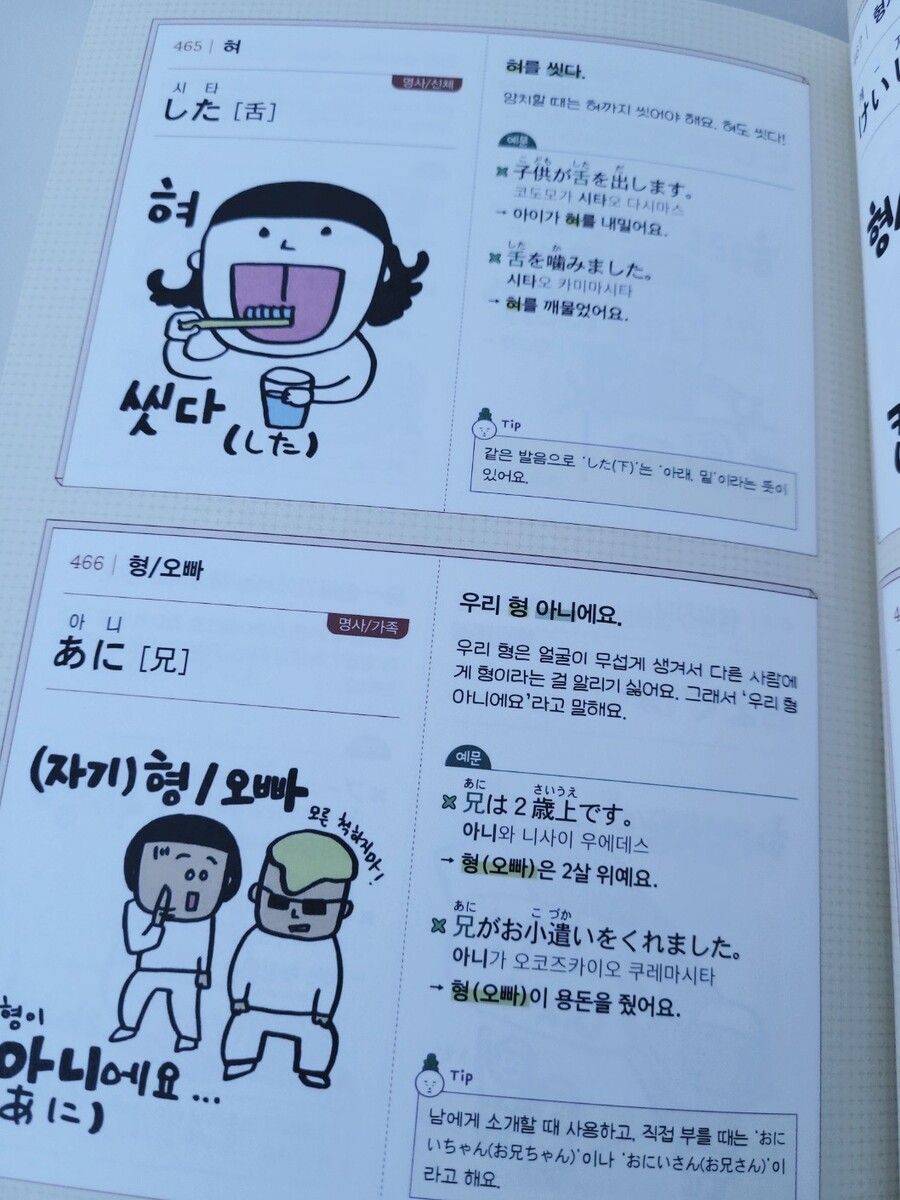 465 | 혀
명사/신체
시 타
した [舌]
혀
씻다
(した)
혀를 씻다.
양치할 때는 혀까지 씻어야 해요. 혀도 씻다!
예문
こ ども した だ
子供が舌を出します。
코도모가 시타오 다시마스
→ 아이가 혀를 내밀어요.
した か
舌を噛みました。
시타오 카미마시타
→ 혀를 깨물었어요.
Tip
같은 발음으로 'した(下)'는 '아래, 밑'이라는 뜻이
있어요.
466 | 형/오빠
명사/가족
아 니
あに [兄]
(자기) 형/오빠
모른 척하지마!
형이
아니에요...
あに)
우리 형 아니에요.
우리 형은 얼굴이 무섭게 생겨서 다른 사람에
게 형이라는 걸 알리기 싫어요. 그래서 '우리 형
아니에요'라고 말해요.
예문
あに さいうえ
兄は 2 歳上です。
아니와 니사이 우에데스
→ 형(오빠)은 2살 위예요.
あに こ づか
兄がお小遣いをくれました。
아니가 오코즈카이오 쿠레마시타
→ 형(오빠)이 용돈을 줬어요.
Tip
남에게 소개할 때 사용하고, 직접 부를 때는 'おに
いちゃん(お兄ちゃん)'이나 'おにいさん(お兄さん)'이
라고 해요.